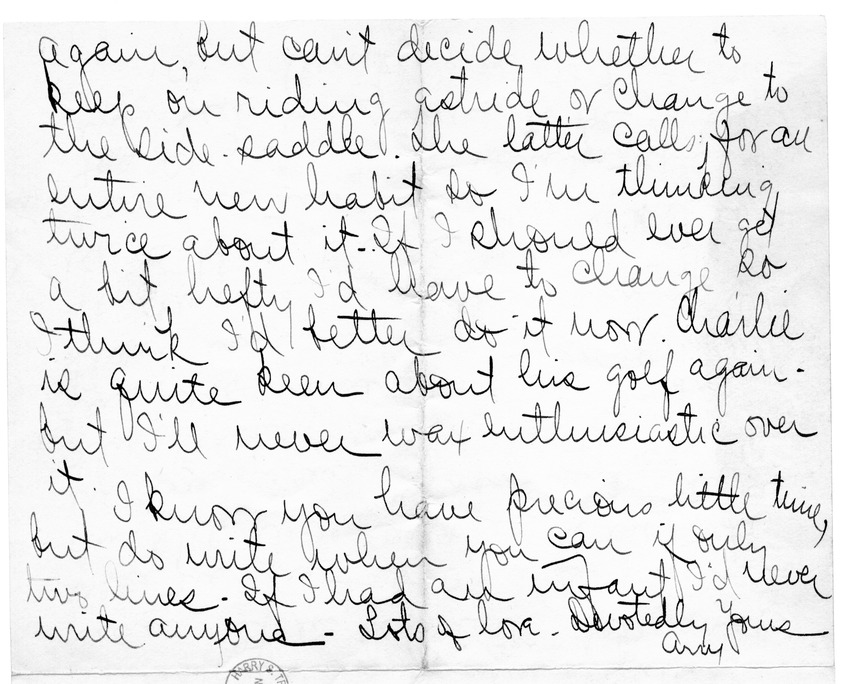 again, but can't decide whether to
keep on riding astride or change to
the side-saddle. The latter calls for an
entire new habit so I'm thinking
twice about it. If I should ever get
a bit hefty I'd have to change so
I think I'd better do it now. Charlie
is quite keen about his golf again -
but I'll never wax enthusiastic over
it.
I know you have precious little time,
but do write when you can if only
two lines. If I had an infant I'd never
write anyone - Lots of love. Devotedly Yours
Arry
HARRY S. TR